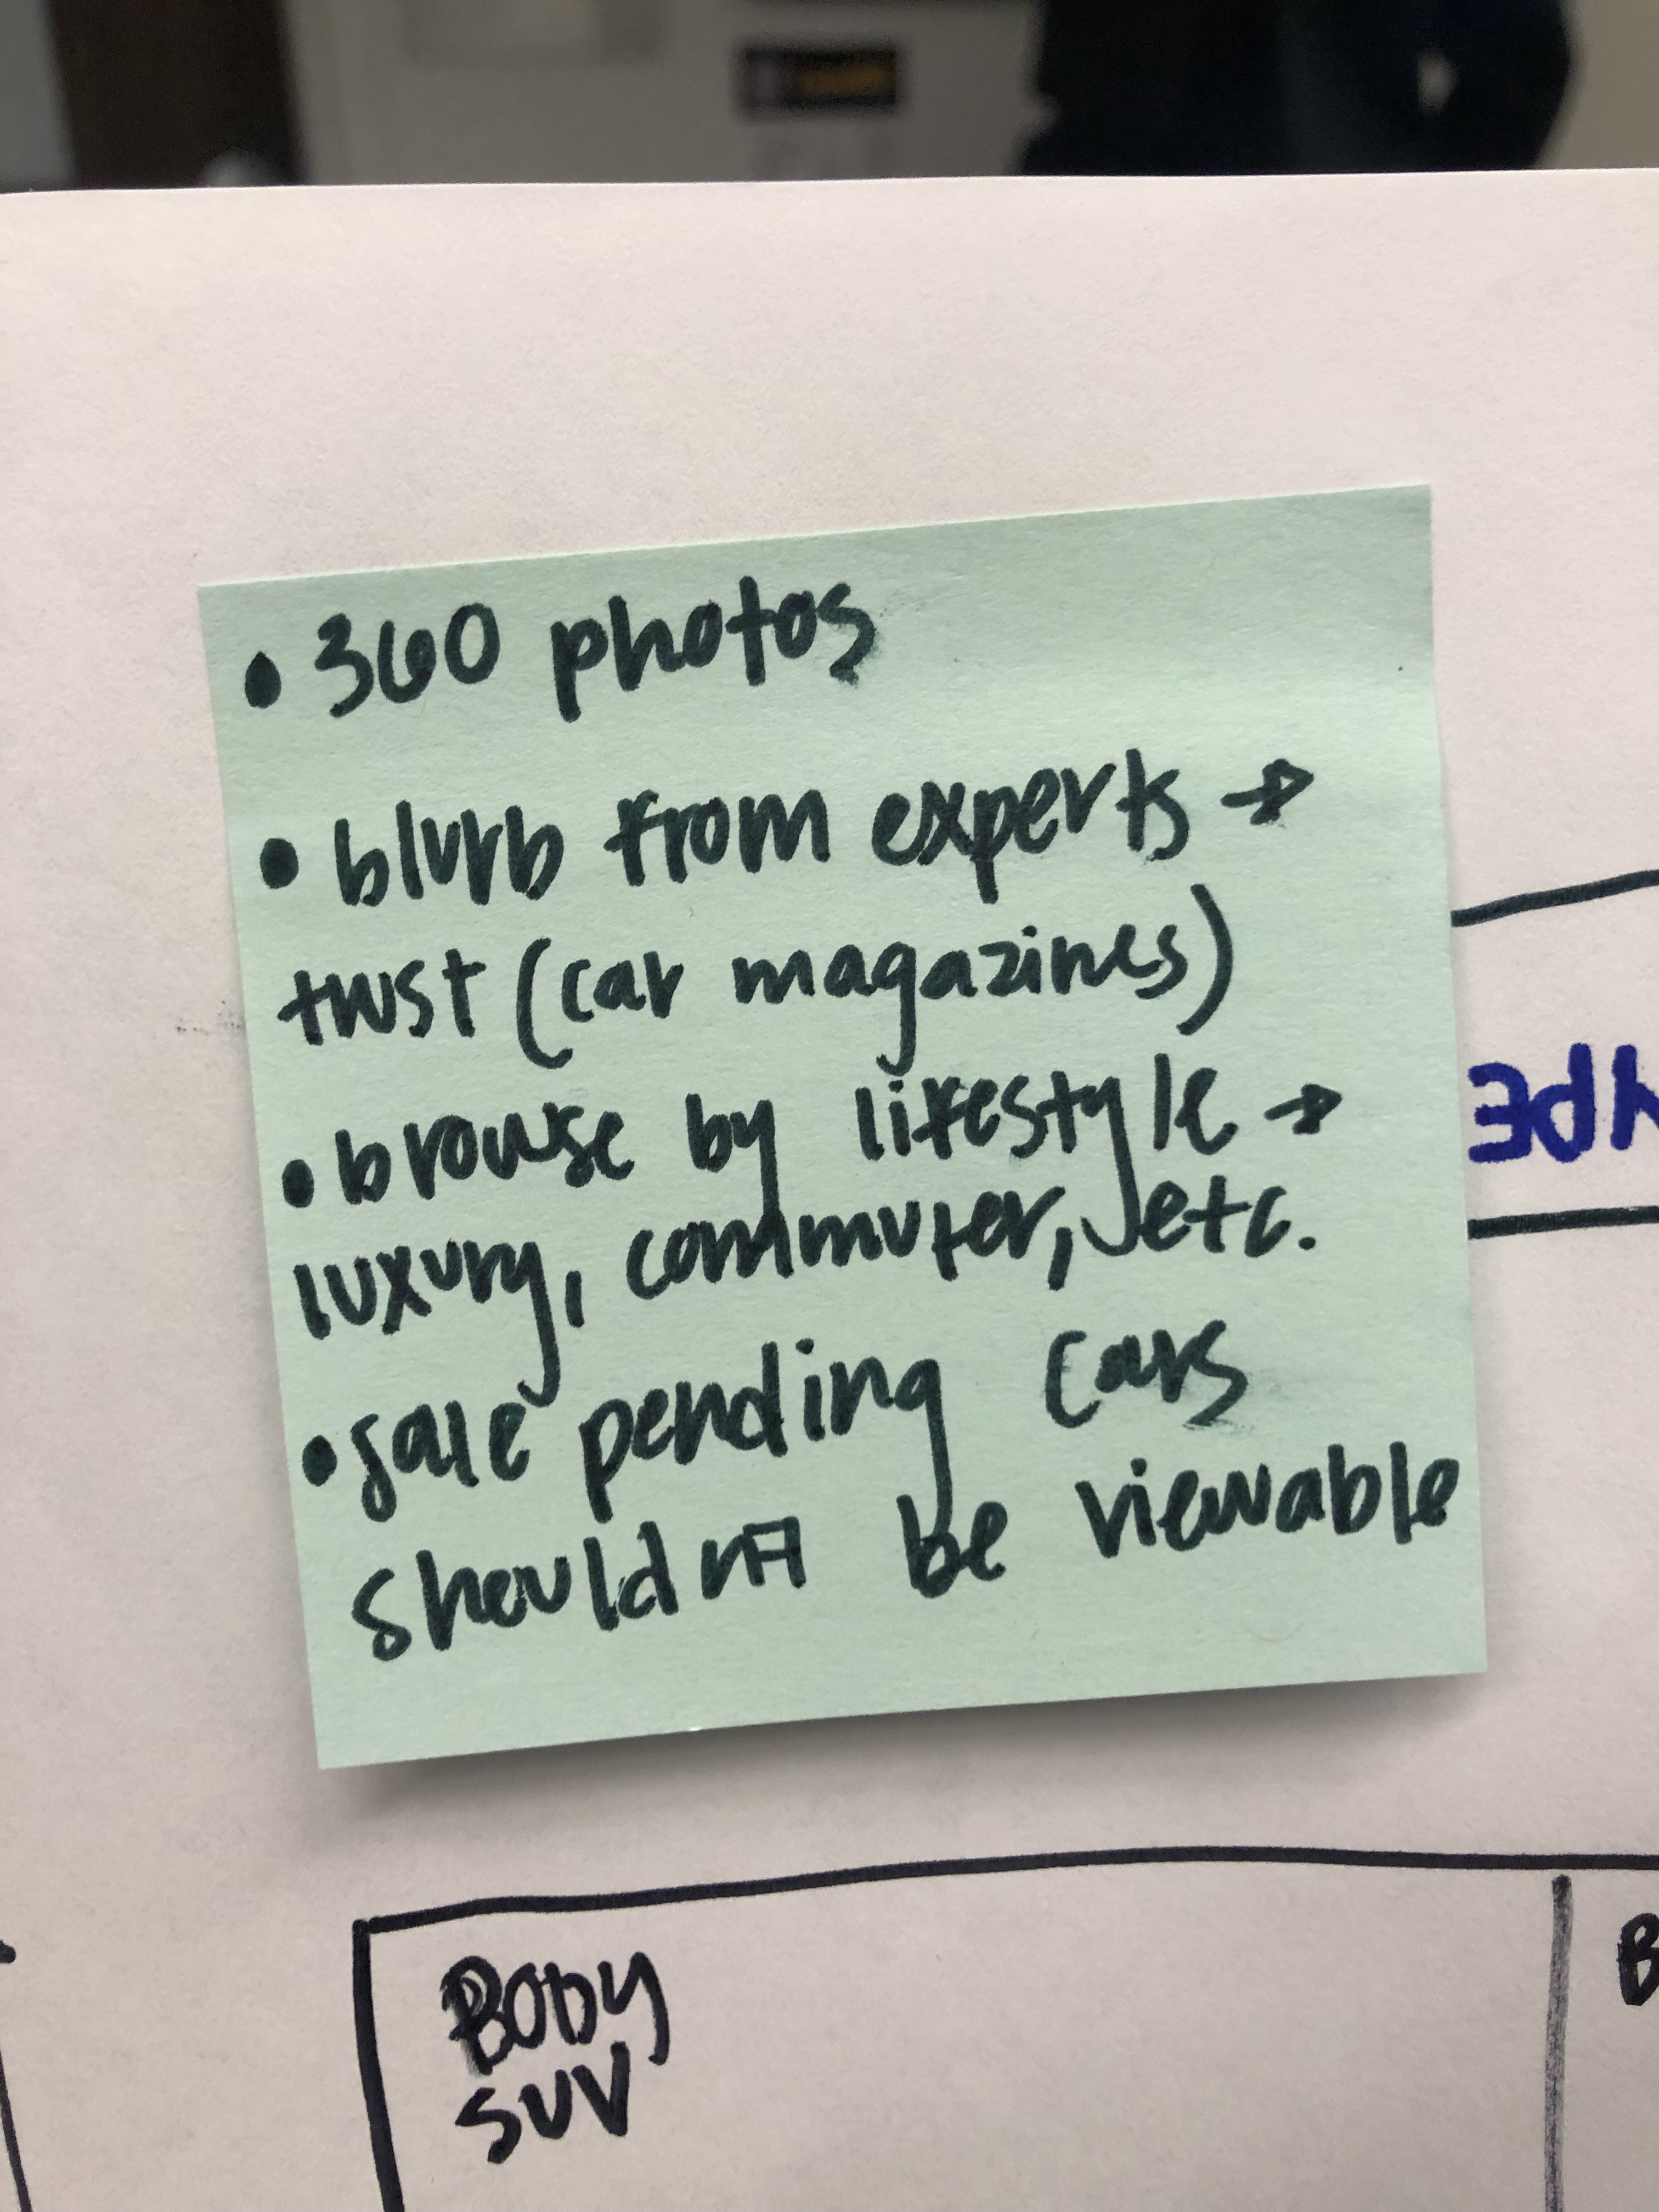 • 360 photos
• blurb from experts →
trust (car magazines)
• browse by lifestyle →
luxury, commuter, etc.
• sale pending cars
shouldn't be viewable
YPE
BODY
SUV
B